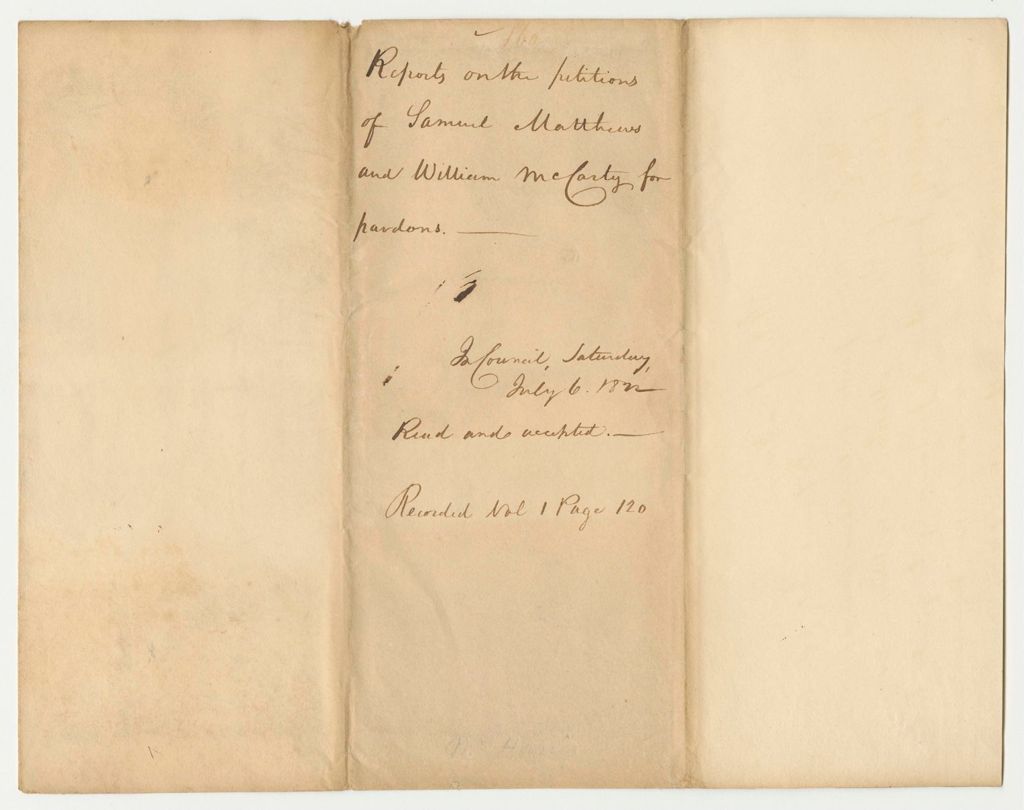 Reports on the petitions
of Samuel Matthews
and William McCarty for
pardons. —
In Council, Saturday,
July 6. 1822
Read and accepted. —
Recorded Vol 1 Page 120